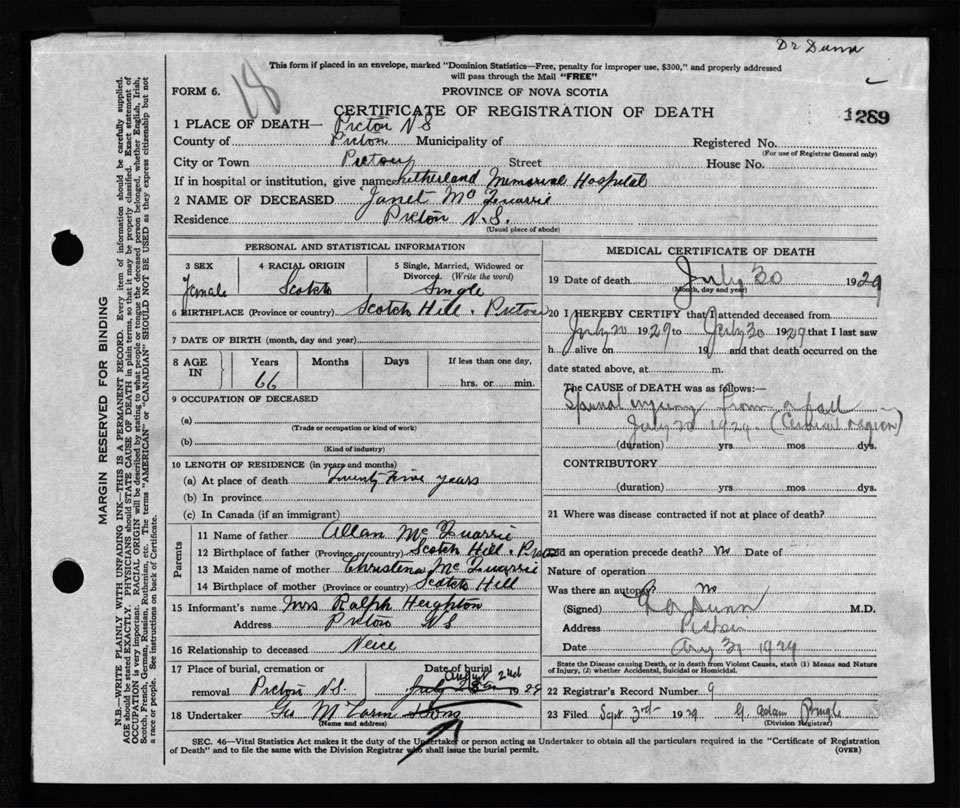 Dr Dunn
18
This form if placed in an envelope, marked "Dominion Statistics—Free, penalty for improper use, $300," and properly addressed
will pass through the Mail "FREE"
FORM 6.
PROVINCE OF NOVA SCOTIA
CERTIFICATE OF REGISTRATION OF DEATH
1289
1 PLACE OF DEATH— Pictou N S
County of Pictou Municipality of Registered No.
(For use of Registrar General only)
City or Town Pictou Street House No.
If in hospital or institution, give name Sutherland Memorial Hospital
2 NAME OF DECEASED Janet McQuarrie
Residence Pictou N.S.
(Usual place of abode)
PERSONAL AND STATISTICAL INFORMATION
3 SEX Female
4 RACIAL ORIGIN Scotch
5 Single, Married, Widowed or
Divorced. (Write the word)
Single
6 BIRTHPLACE (Province or country) Scotch Hill. Pictou
7 DATE OF BIRTH (month, day and year)
8 AGE IN Years 66 Months Days If less than one day,
hrs. or min.
9 OCCUPATION OF DECEASED
(a)
(Trade or occupation or kind of work)
(b)
(Kind of industry)
10 LENGTH OF RESIDENCE (in years and months)
(a) At place of death Twenty Five years
(b) In province
(c) In Canada (if an immigrant)
Parents
11 Name of father Allan McQuarrie
12 Birthplace of father (Province or country) Scotch Hill. Pictou
13 Maiden name of mother Christena McQuarrie
14 Birthplace of mother (Province or country) Scotch Hill
15 Informant's name Mrs Ralph Heighton
Address Pictou NS
16 Relationship to deceased Neice
17 Place of burial, cremation or
removal Pictou NS.
Date of burial
August 2nd
July 1929
18 Undertaker Geo McLaren & Sons
(Name and address)
MEDICAL CERTIFICATE OF DEATH
19 Date of death July 30 1929
(Month, day and year)
20 I HEREBY CERTIFY that I attended deceased from
July 20 1929 to July 30 1929 that I last saw
h alive on 19 and that death occurred on the
date stated above, at m.
The CAUSE OF DEATH was as follows:—
Spinal injury from a fall
July 20 1929. (Cervical region)
(duration) yrs mos dys.
CONTRIBUTORY
(duration) yrs mos dys.
21 Where was disease contracted if not at place of death?
Did an operation precede death? No Date of
Nature of operation
Was there an autopsy? No
(Signed) Dunn M.D.
Address Pictou
Date 1929
State the Disease causing Death, or in death from Violent Causes, state (1) Means and Nature
of Injury, (2) whether Accidental, Suicidal or Homicidal.
22 Registrar's Record Number 9
23 Filed Sept 3rd 1929 G. Adam Pringle
(Division Registrar)
SEC. 46—Vital Statistics Act makes it the duty of the Undertaker or person acting as Undertaker to obtain all the particulars required in the "Certificate of Registration
of Death" and to file the same with the Division Registrar who shall issue the burial permit.
(OVER)
MARGIN RESERVED FOR BINDING
N.B.—WRITE PLAINLY WITH UNFADING INK—THIS IS A PERMANENT RECORD. Every item of information should be carefully supplied.
AGE should be stated EXACTLY. PHYSICIANS should STATE CAUSE OF DEATH in plain terms, so that it may be properly classified. Exact statement of
OCCUPATION is very important. RACIAL ORIGIN will be described by stating to what people or tongue the deceased person belonged, whether English, Irish,
Scotch, French, German, Russian, Ruthenian, etc. The terms "AMERICAN" or "CANADIAN" SHOULD NOT BE USED as they express citizenship but not
a race or people. See instructions on back of Certificate.